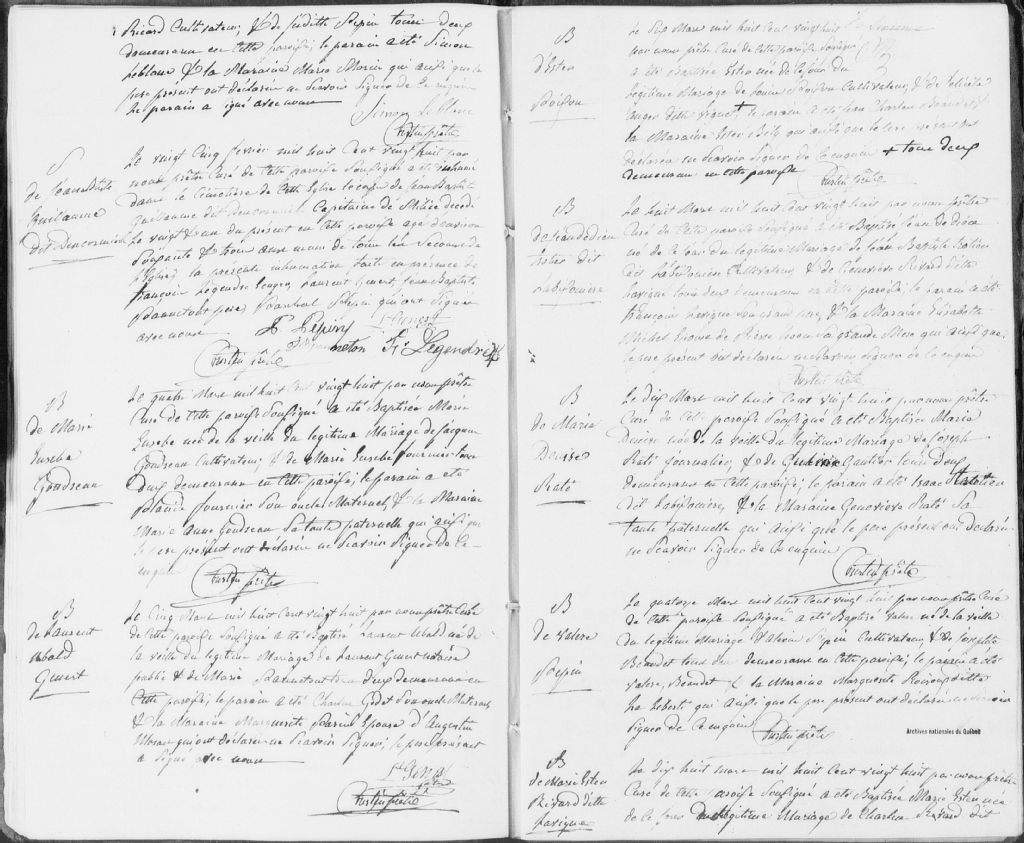 Ricard Cultivateur, & de Judith Pepin tous deux
demeurans en cette paroisse; le parain a été Simon
Leblanc & la Maraine Marie Morin qui ainsi que le
pere présent ont déclarés ne Scavoir Signer de ce enquis
Le parain a signé avec nous
Simon Leblanc
prêtre
S
de Jean Baptiste
Guillaume
dit
Le vingt Cinq fevrier mil huit Cent vingt huit par
nous prêtre Curé de Cette paroisse Soussigné a été inhumé
dans le Cimetière de Cette Eglise le corps de Jean Baptiste
Guillaume dit Capitaine de Milice decedé
Le vingt du present en Cette paroisse agé d'environ
Soixante & trois ans muni de tous les Secours de
l'Eglise la presente inhumation faite en presence de
françois Légendre Laurent Genest, Jean Baptiste
pere Pepin qui ont Signé
avec nous
P. Pepin
L. Genest
Fs Légendre
prêtre
B
de Marie
Eusebe
Goudreau
Le quatre Mars mil huit Cent vingt huit par nous prêtre
Curé de Cette paroisse Soussigné a été Baptisée Marie
Eusebe née de la veille du legitime Mariage de Jacques
Goudreau Cultivateur, & de Marie Eusebe fournier tous
deux demeurans en Cette paroisse; le parain a été
fournier Son oncle Maternel, & la Maraine
Marie Anne Goudreau Sa tante paternelle qui ainsi que
le pere présent ont déclarés ne Scavoir Signer de Ce
enquis
prêtre
B
de Laurent
Ubald
Genest
Le Cinq Mars mil huit Cent vingt huit par nous prêtre Curé
de Cette paroisse Soussigné a été Baptisé Laurent Ubald né de
la veille du legitime Mariage de Laurent Genest notaire
public & de Marie tous deux demeurans en
Cette paroisse; le parain a été Charles Son oncle Maternel
& la Maraine Marguerite Epouse d'Augustin
Morin qui ont déclarés ne Scavoir Signer; le pere présent
a Signé avec nous
L. Genest
prêtre
B
d'Ester
Poisson
Le Six Mars mil huit Cent vingt huit
par nous prêtre Curé de Cette paroisse Soussigné
a été Baptisée Ester née de Ce jour du
légitime Mariage de Louis Poisson Cultivateur, & de Felicité
Auger le parain a été Charles Beaudet &
la Maraine Ester qui ainsi que le pere présent ont
déclarés ne Scavoir Signer de Ce enquis + tous deux
demeurans en cette paroisse
prêtre
B
de Jean de dieu
dit
Labissonière
Le huit Mars mil huit Cent vingt huit par nous prêtre
Curé de Cette paroisse Soussigné a été Baptisé Jean de dieu
né de Ce jour du legitime Mariage de Jean Baptiste
dit Labissonière Cultivateur, & de Genevieve Rivard ditte
Lavigne tous deux demeurans en Cette paroisse; le parain a été
françois Lavigne Son grand pere, & la Maraine Elizabeth
Michel veuve de Pierre Sa grande Mere qui ainsi que
le pere present ont déclarés ne Scavoir Signer de Ce enquis
prêtre
B
de Marie
Denise
Raté
Le dix Mars mil huit Cent vingt huit par nous prêtre
Curé de Cette paroisse Soussigné a été Baptisée Marie
Denise née de la veille du legitime Mariage de Joseph
Raté journalier, & de Gautier tous deux
demeurans en Cette paroisse; le parain a été Isaac
dit Labissonière, & la Maraine Genevieve Raté Sa
tante paternelle qui ainsi que le pere présent ont déclarés
ne Scavoir Signer de Ce enquis
prêtre
B
de Valere
Pepin
Le quatorze Mars mil huit Cent vingt huit par nous prêtre Curé
de Cette paroisse Soussigné a été Baptisé Valere né de la veille
du legitime Mariage d'Alexis Pepin Cultivateur, & de Josephte
Beaudet tous deux demeurans en Cette paroisse; le parain a été
Valere Beaudet & la Maraine Marguerite ditte
qui ainsi que le pere présent ont déclarés ne Scavoir
Signer de Ce enquis
prêtre
Archives nationales du Québec
B
de Marie Ester
Rivard ditte
Lavigne
Le dix huit mars mil huit Cent vingt huit par nous prêtre
Curé de Cette paroisse Soussigné a été Baptisée Marie Ester née
de Ce jour du legitime Mariage de Charles Rivard dit